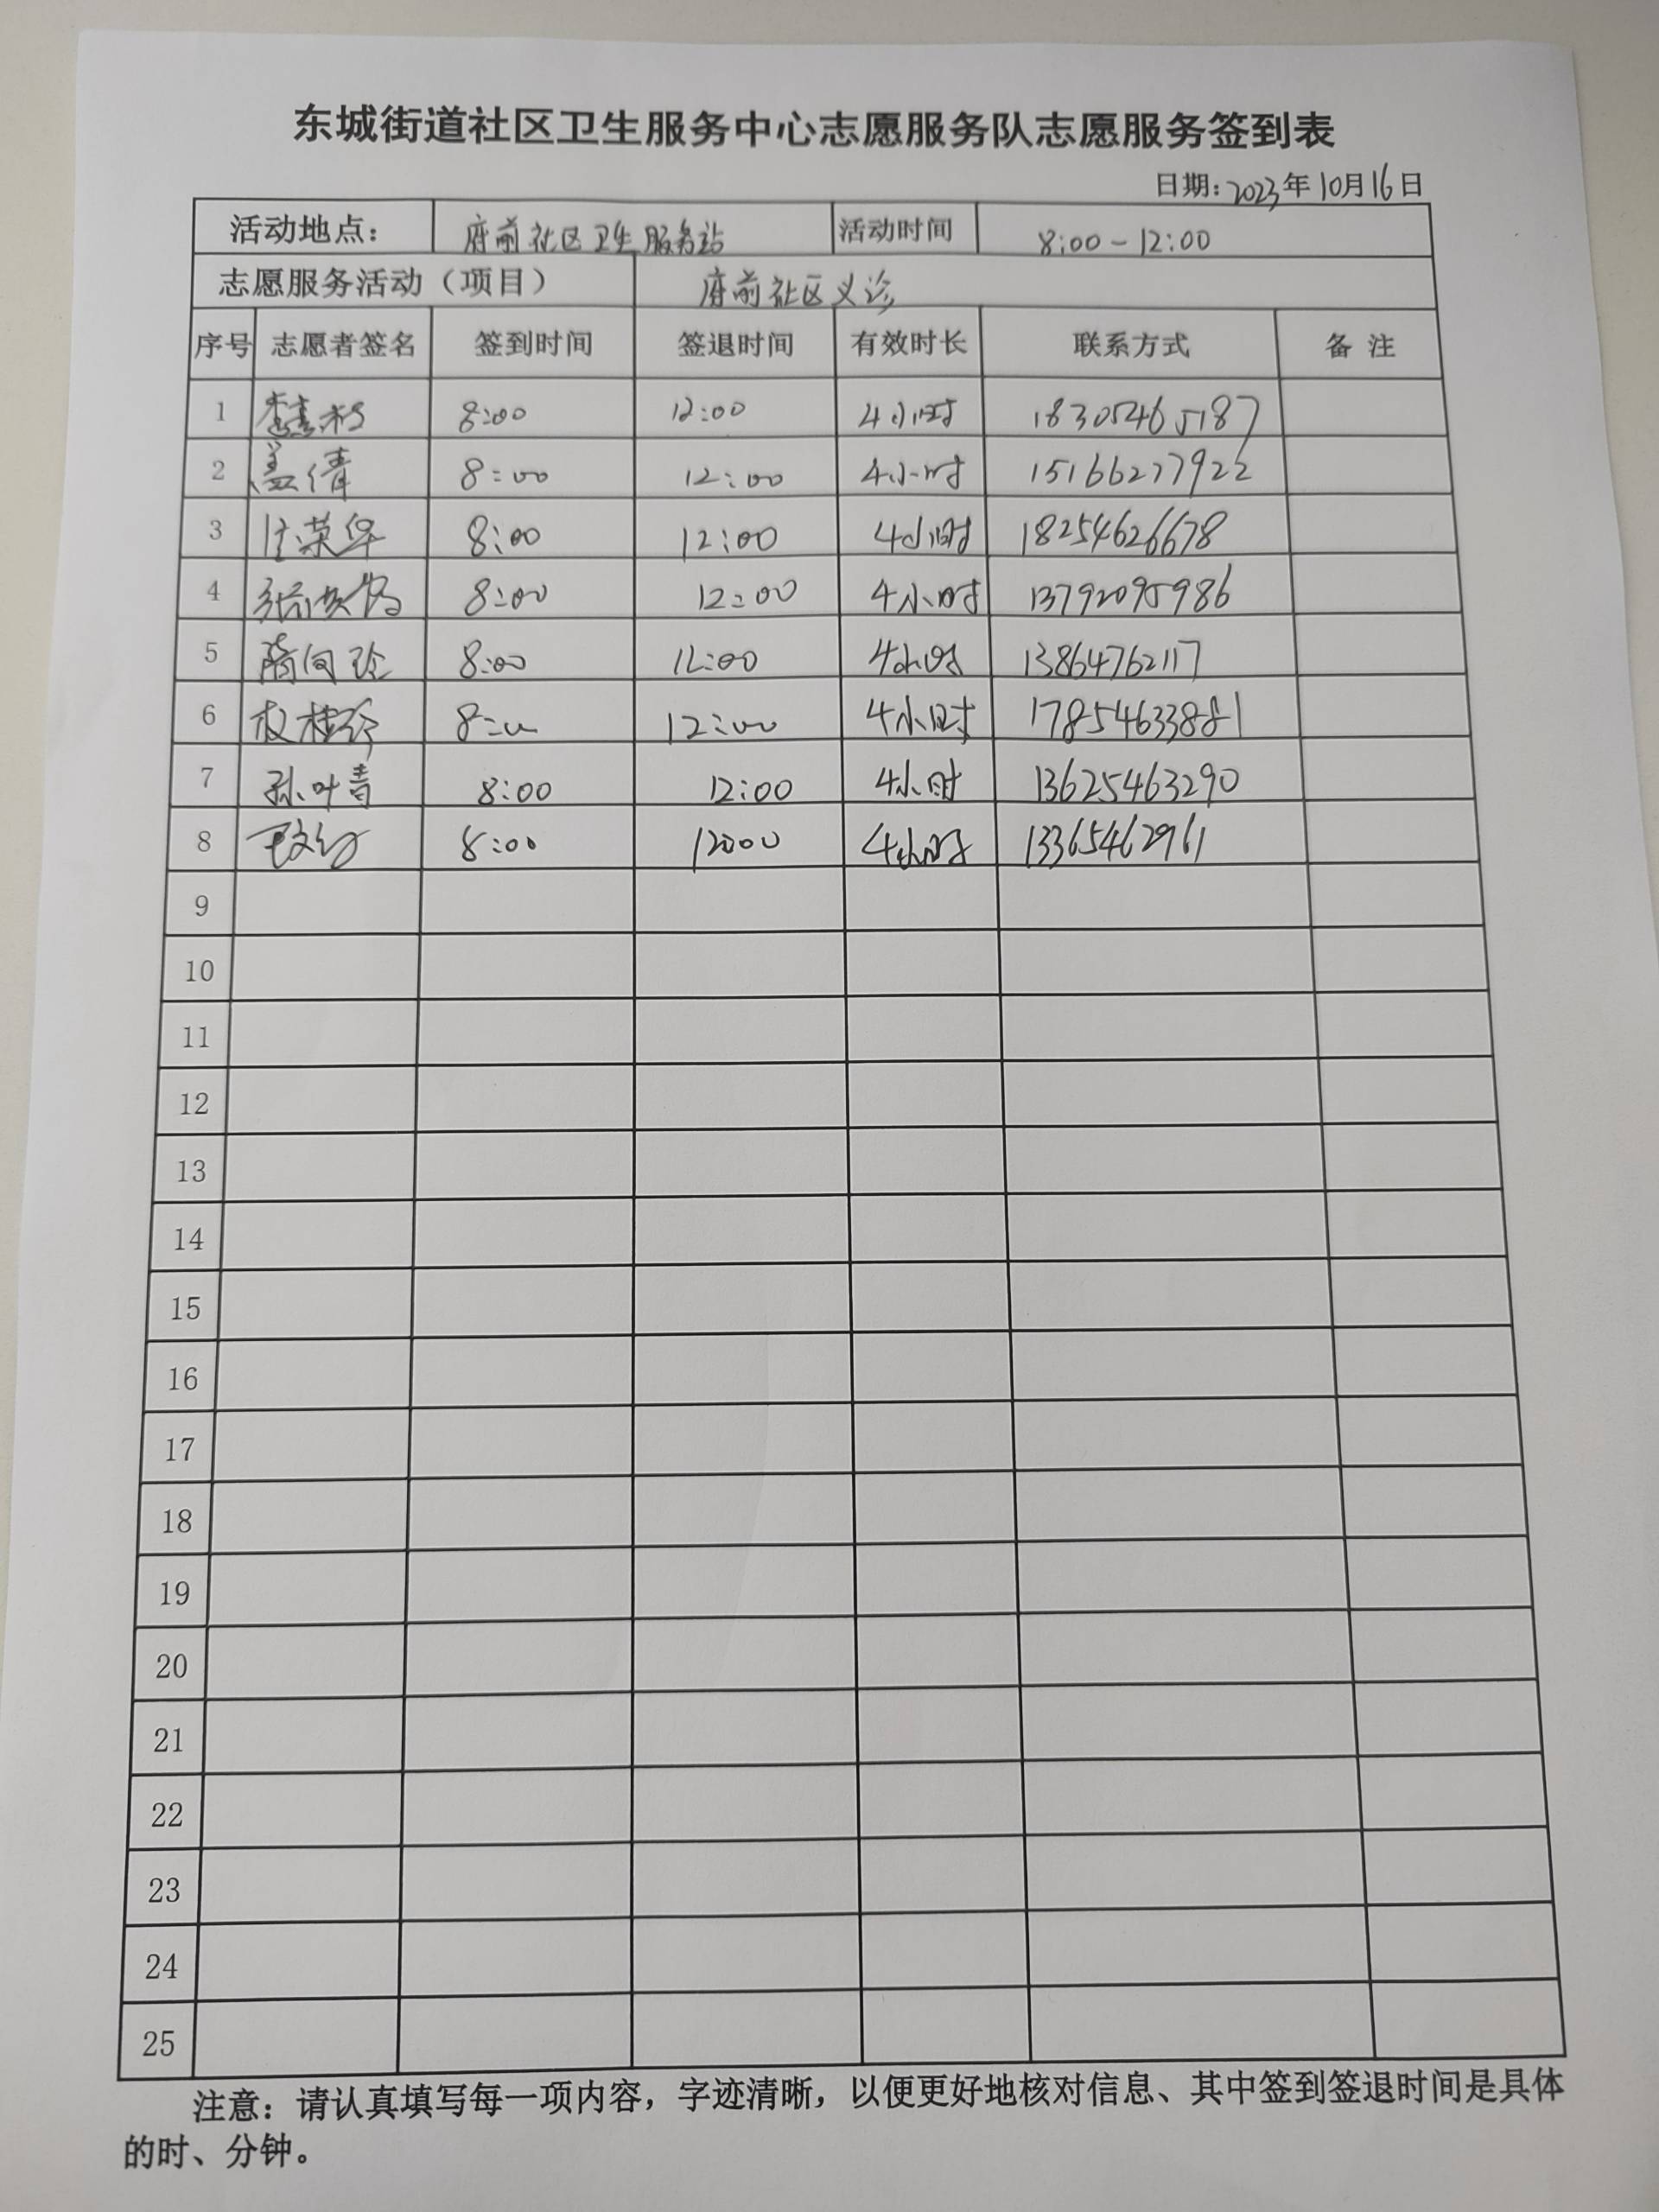 东城街道社区卫生服务中心志愿服务队志愿服务签到表
日期：2023年10月16日
活动地点： 府前社区卫生服务站 活动时间 8:00-12:00
志愿服务活动（项目） 府前社区义诊
序号 志愿者签名 签到时间 签退时间 有效时长 联系方式 备 注
1 8:00 12:00 4小时 18305465187
2 盖倩 8:00 12:00 4小时 15166277922
3 荣华 8:00 12:00 4小时 18254626678
4 8:00 12:00 4小时 13792095986
5 8:00 12:00 4小时 13864762117
6 8:00 12:00 4小时 17854633881
7 孙叶青 8:00 12:00 4小时 13625463290
8 8:00 12:00 4小时 13365462961
9
10
11
12
13
14
15
16
17
18
19
20
21
22
23
24
25
注意：请认真填写每一项内容，字迹清晰，以便更好地核对信息、其中签到签退时间是具体
的时、分钟。